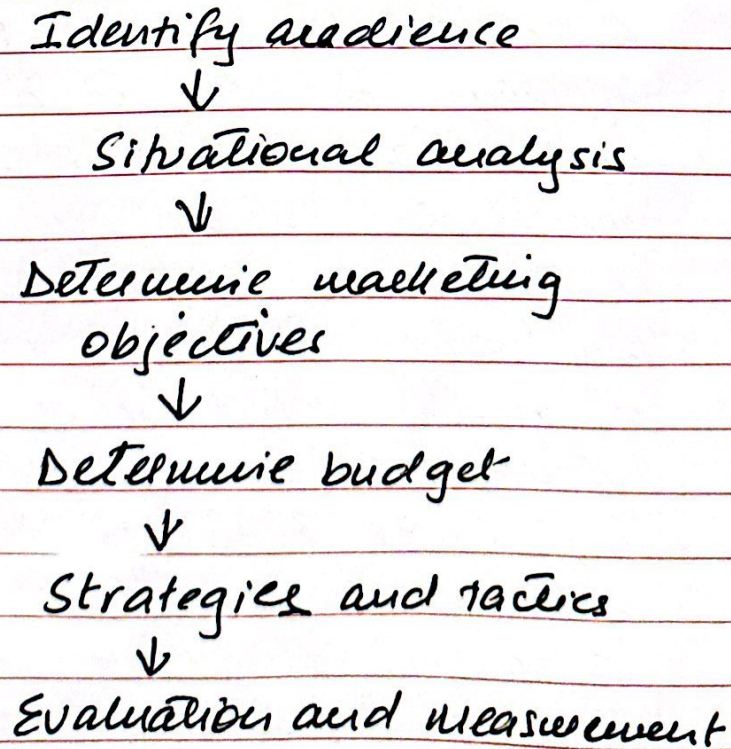 Identify audience
↓
Situational analysis
↓
Determine marketing
objectives
↓
Determine budget
↓
Strategies and tactics
↓
Evaluation and measurement